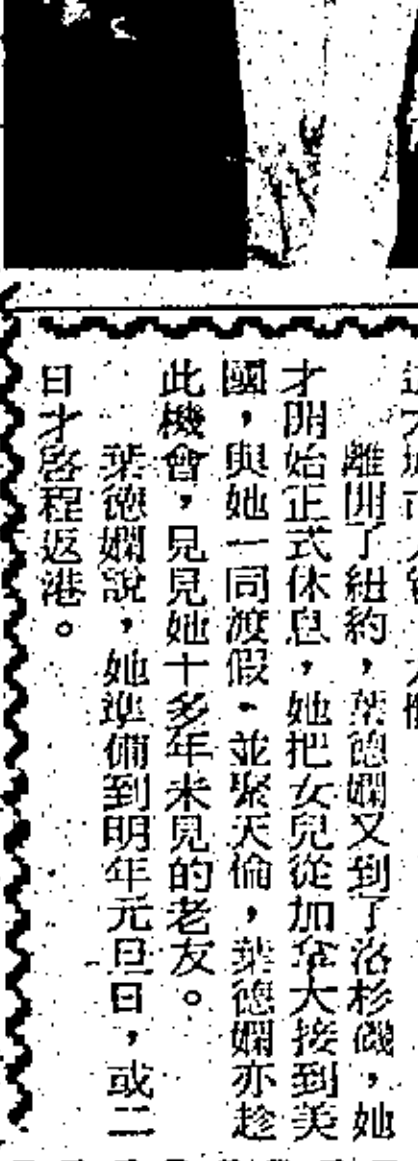 離開了紐約，葉德嫻又到了洛杉磯，她
才開始正式休息，她把女兒從加拿大接到美
國，與她一同渡假，並聚天倫，葉德嫻亦趁
此機會，見見她十多年未見的老友。
葉德嫻說，她準備到明年元旦日，或二
日才啓程返港。